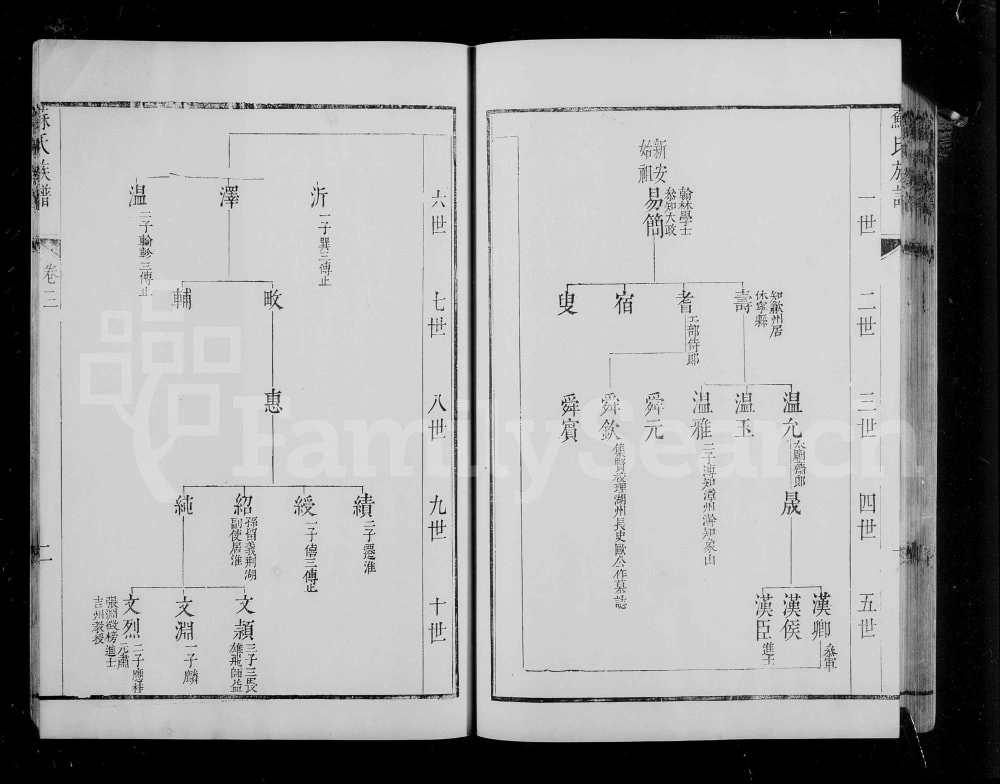 蘇氏族譜
一世
新安
始祖
易簡
翰林學士
叅知大政
二世
壽
知歙州居
休寧縣
耆
工部侍郎
宿
叟
三世
温允
太廟齋郎
温玉
温雅
二子溥知漳州瀚知象山
舜元
舜欽
集賢校理湖州長史歐公作墓誌
舜賓
四世
晟
五世
漢卿
叅軍
漢侯
漢臣
進士
六世
沂
一子巽三傳止
澤
温
二子輪軫三傳止
七世
畋
輔
八世
惠
九世
績
二子遷淮
綬
一子僖三傳止
紹
孫留義荆湖
副使居淮
純
十世
文顯
三子三畏
雄飛師益
文淵
一子麟
文烈
二子應祥
元肅
張淵榜進士
吉州教授
蘇氏族譜
卷二
二
FamilySearch